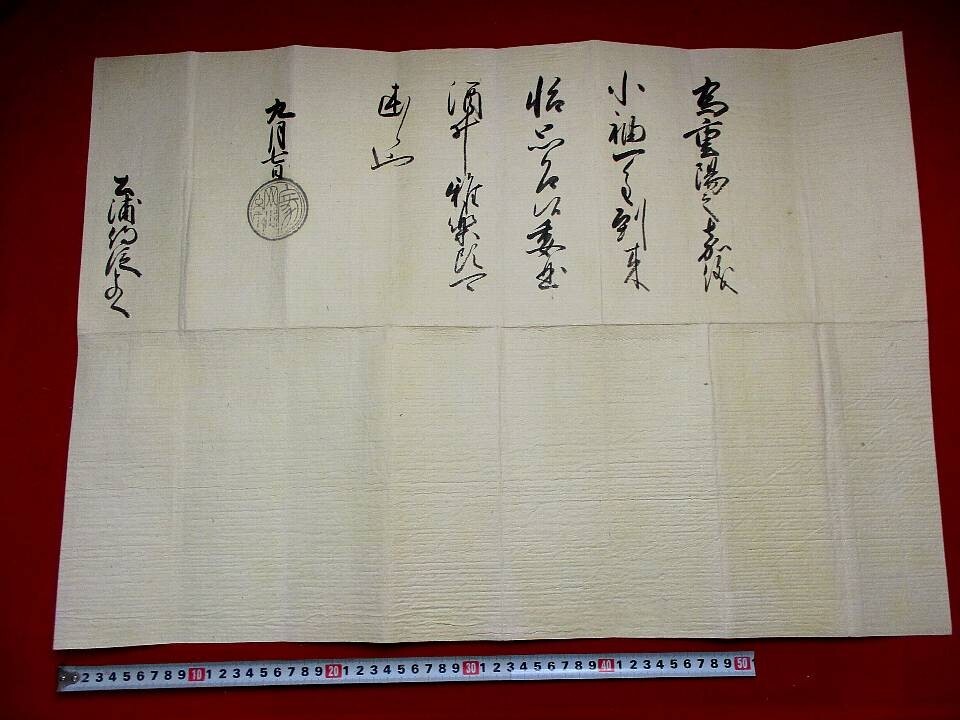 為重陽之嘉儀
小袖一重到来
怡思召候委曲
酒井雅楽頭可
述候也
九月七日
浦侍従とのへ
2 3 4 5 6 7 8 9 10 1 2 3 4 5 6 7 8 9 20 1 2 3 4 5 6 7 8 9 30 1 2 3 4 5 6 7 8 9 40 1 2 3 4 5 6 7 8 9 50